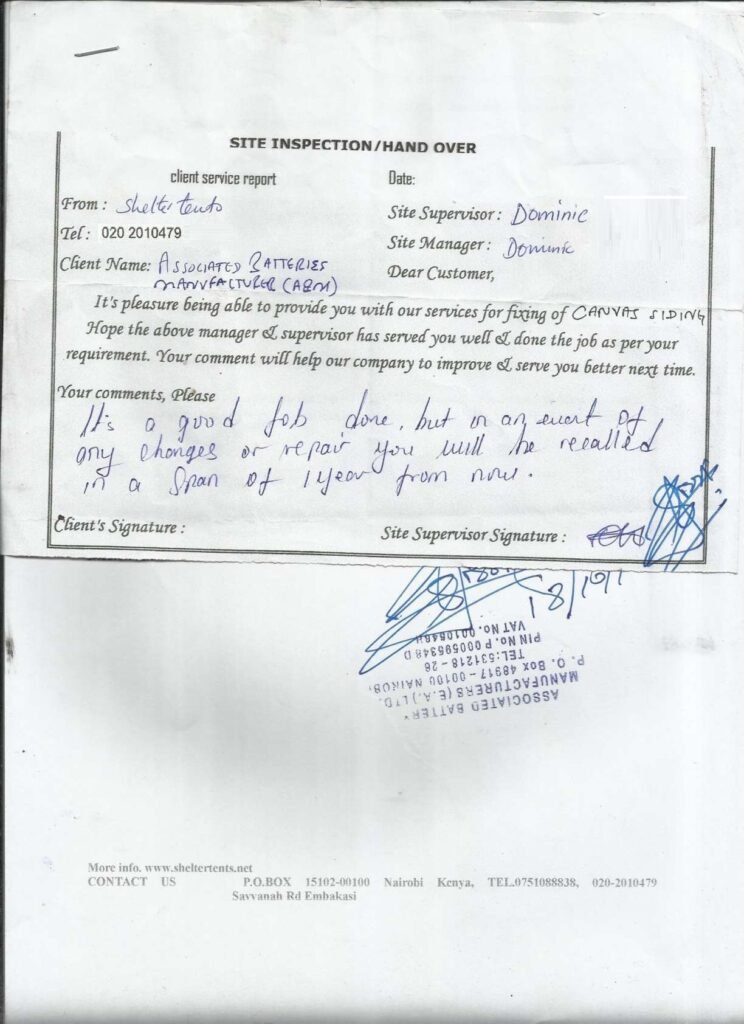 SITE INSPECTION/HAND OVER
client service report
Date:
From: Shelter tents
Site Supervisor: Dominic
Tel: 020 2010479
Site Manager: Dominic
Client Name: ASSOCIATED BATTERIES
MANUFACTURER (ABM)
Dear Customer,
It's pleasure being able to provide you with our services for fixing of CANVAS SIDING
Hope the above manager & supervisor has served you well & done the job as per your
requirement. Your comment will help our company to improve & serve you better next time.
Your comments, Please
It's a good job done, but in an event of
any changes or repair you will be recalled
in a span of 1 year from now.
Client's Signature:
Site Supervisor Signature:
ASSOCIATED BATTER
MANUFACTURERS (E.A.) LTD.
P. O. Box 48917 - 00100 NAIROB
TEL: 531218 - 26
PIN No. P 000595348 D
VAT No.
More info. www.sheltertents.net
CONTACT US P.O.BOX 15102-00100 Nairobi Kenya, TEL.0751088838, 020-2010479
Savvanah Rd Embakasi